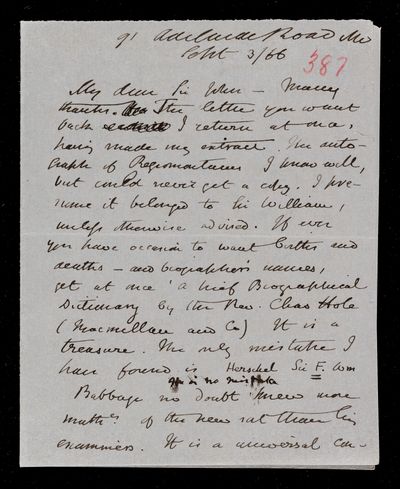 91 Adelaide Road NW
Sept 3/66
387
My dear Sir John – Many
thanks. The letter you want
back I return at once,
having made my extract. The auto-
graph of Regiomontanus I know well,
but could never get a copy. I pre-
sume it belonged to Sir William,
unless otherwise advised. If ever
you have occasion to want births and
deaths – and biographer's names,
get at once 'a brief Biographical
Dictionary by the Rev. Chas Hole
(Macmillan and Co) It is a
treasure. The only mistake I
have found is Herschel Sir F. Wm
is no mistake
Babbage no doubt knew more
math of the new sort than his
examiners. It is a universal con-